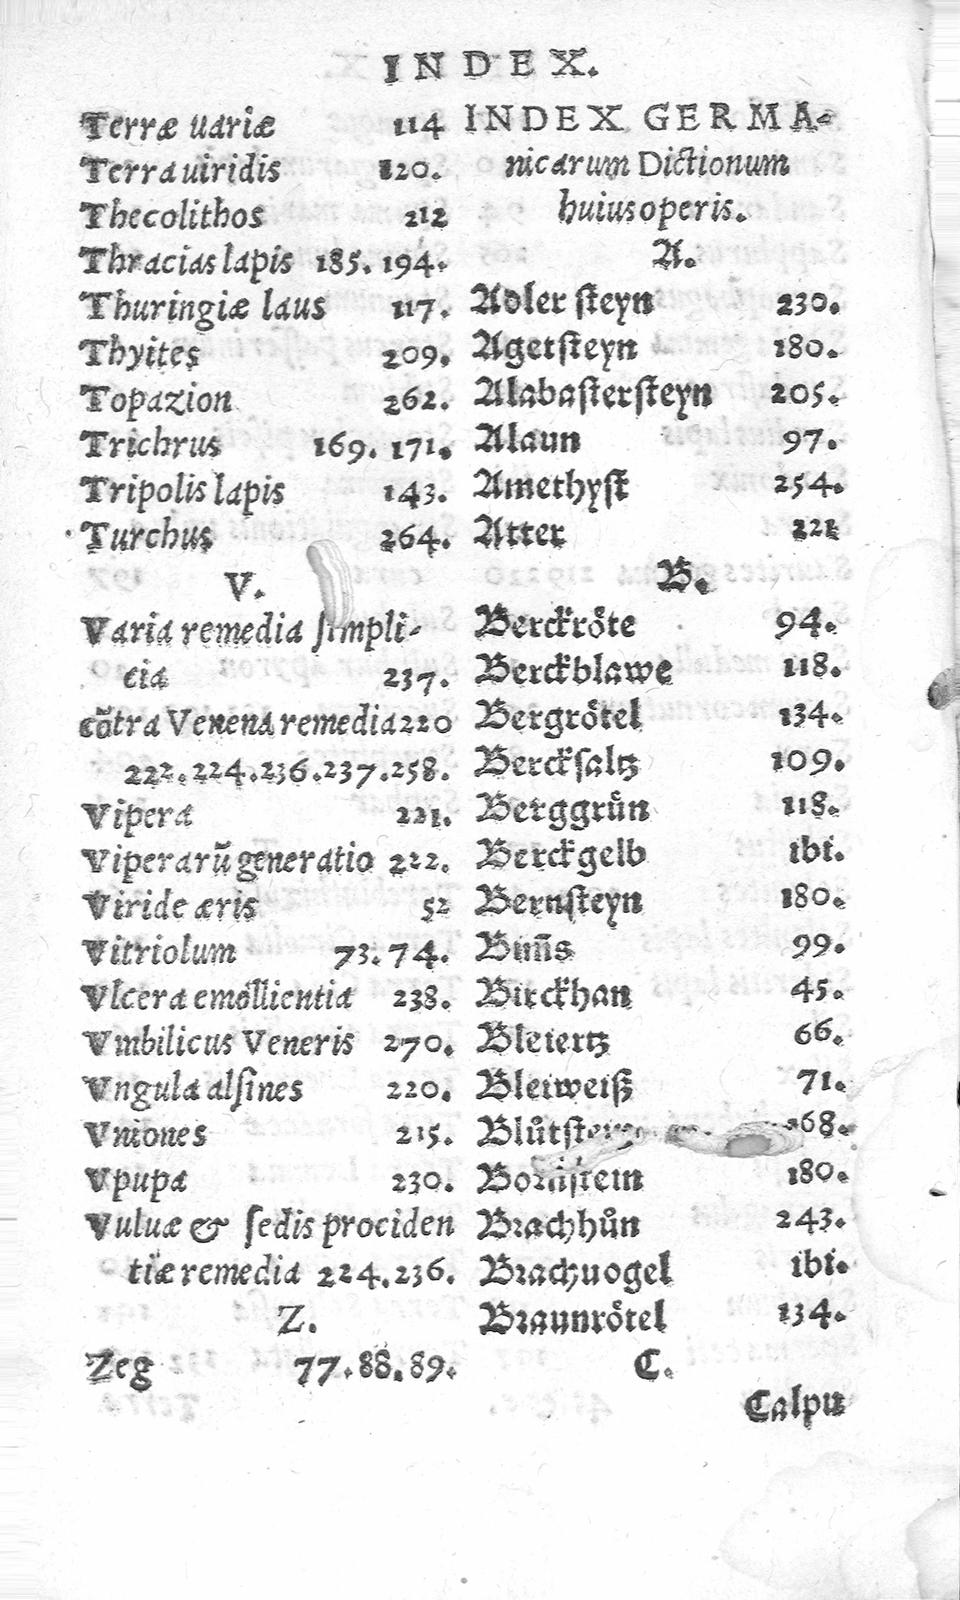 INDEX.
Terræ uariæ 114
Terra uiridis 120.
Thecolithos 212
Thracias lapis 185. 194.
Thuringiæ laus 117.
Thyites 209.
Topazion 262.
Trichrus 169. 171.
Tripolis lapis 143.
Turchus 264.
V.
Varia remedia ſimpli-
cia 237.
cõtra Venena remedia 220
222. 224. 236. 237. 258.
Vipera 221.
Viperarũ generatio 222.
Viride æris 52
Vitriolum 73. 74.
Vlcera emollientia 238.
Vmbilicus Veneris 270.
Vngula alſines 220.
Vniones 215.
Vpupa 230.
Vuluæ & ſedis prociden
tiæ remedia 224. 236.
Z.
Zeg 77. 88. 89.
INDEX GERMA-
nicarum Dictionum
huius operis.
A.
Adler ſteyn 230.
Agetſteyn 180.
Alabaſterſteyn 205.
Alaun 97.
Amethyſt 254.
Atter 221
B.
Berckroͤte 94.
Berckblawe 118.
Bergroͤtel 134.
Berckſaltz 109.
Berggruͤn 118.
Berckgelb ibi.
Bernſteyn 180.
Bim̃s 99.
Birckhan 45.
Bleiertz 66.
Bleiweiß 71.
168.
Bornſtein 180.
Brachhuͤn 243.
Brachuogel ibi.
Braunroͤtel 134.
C.
Calpu